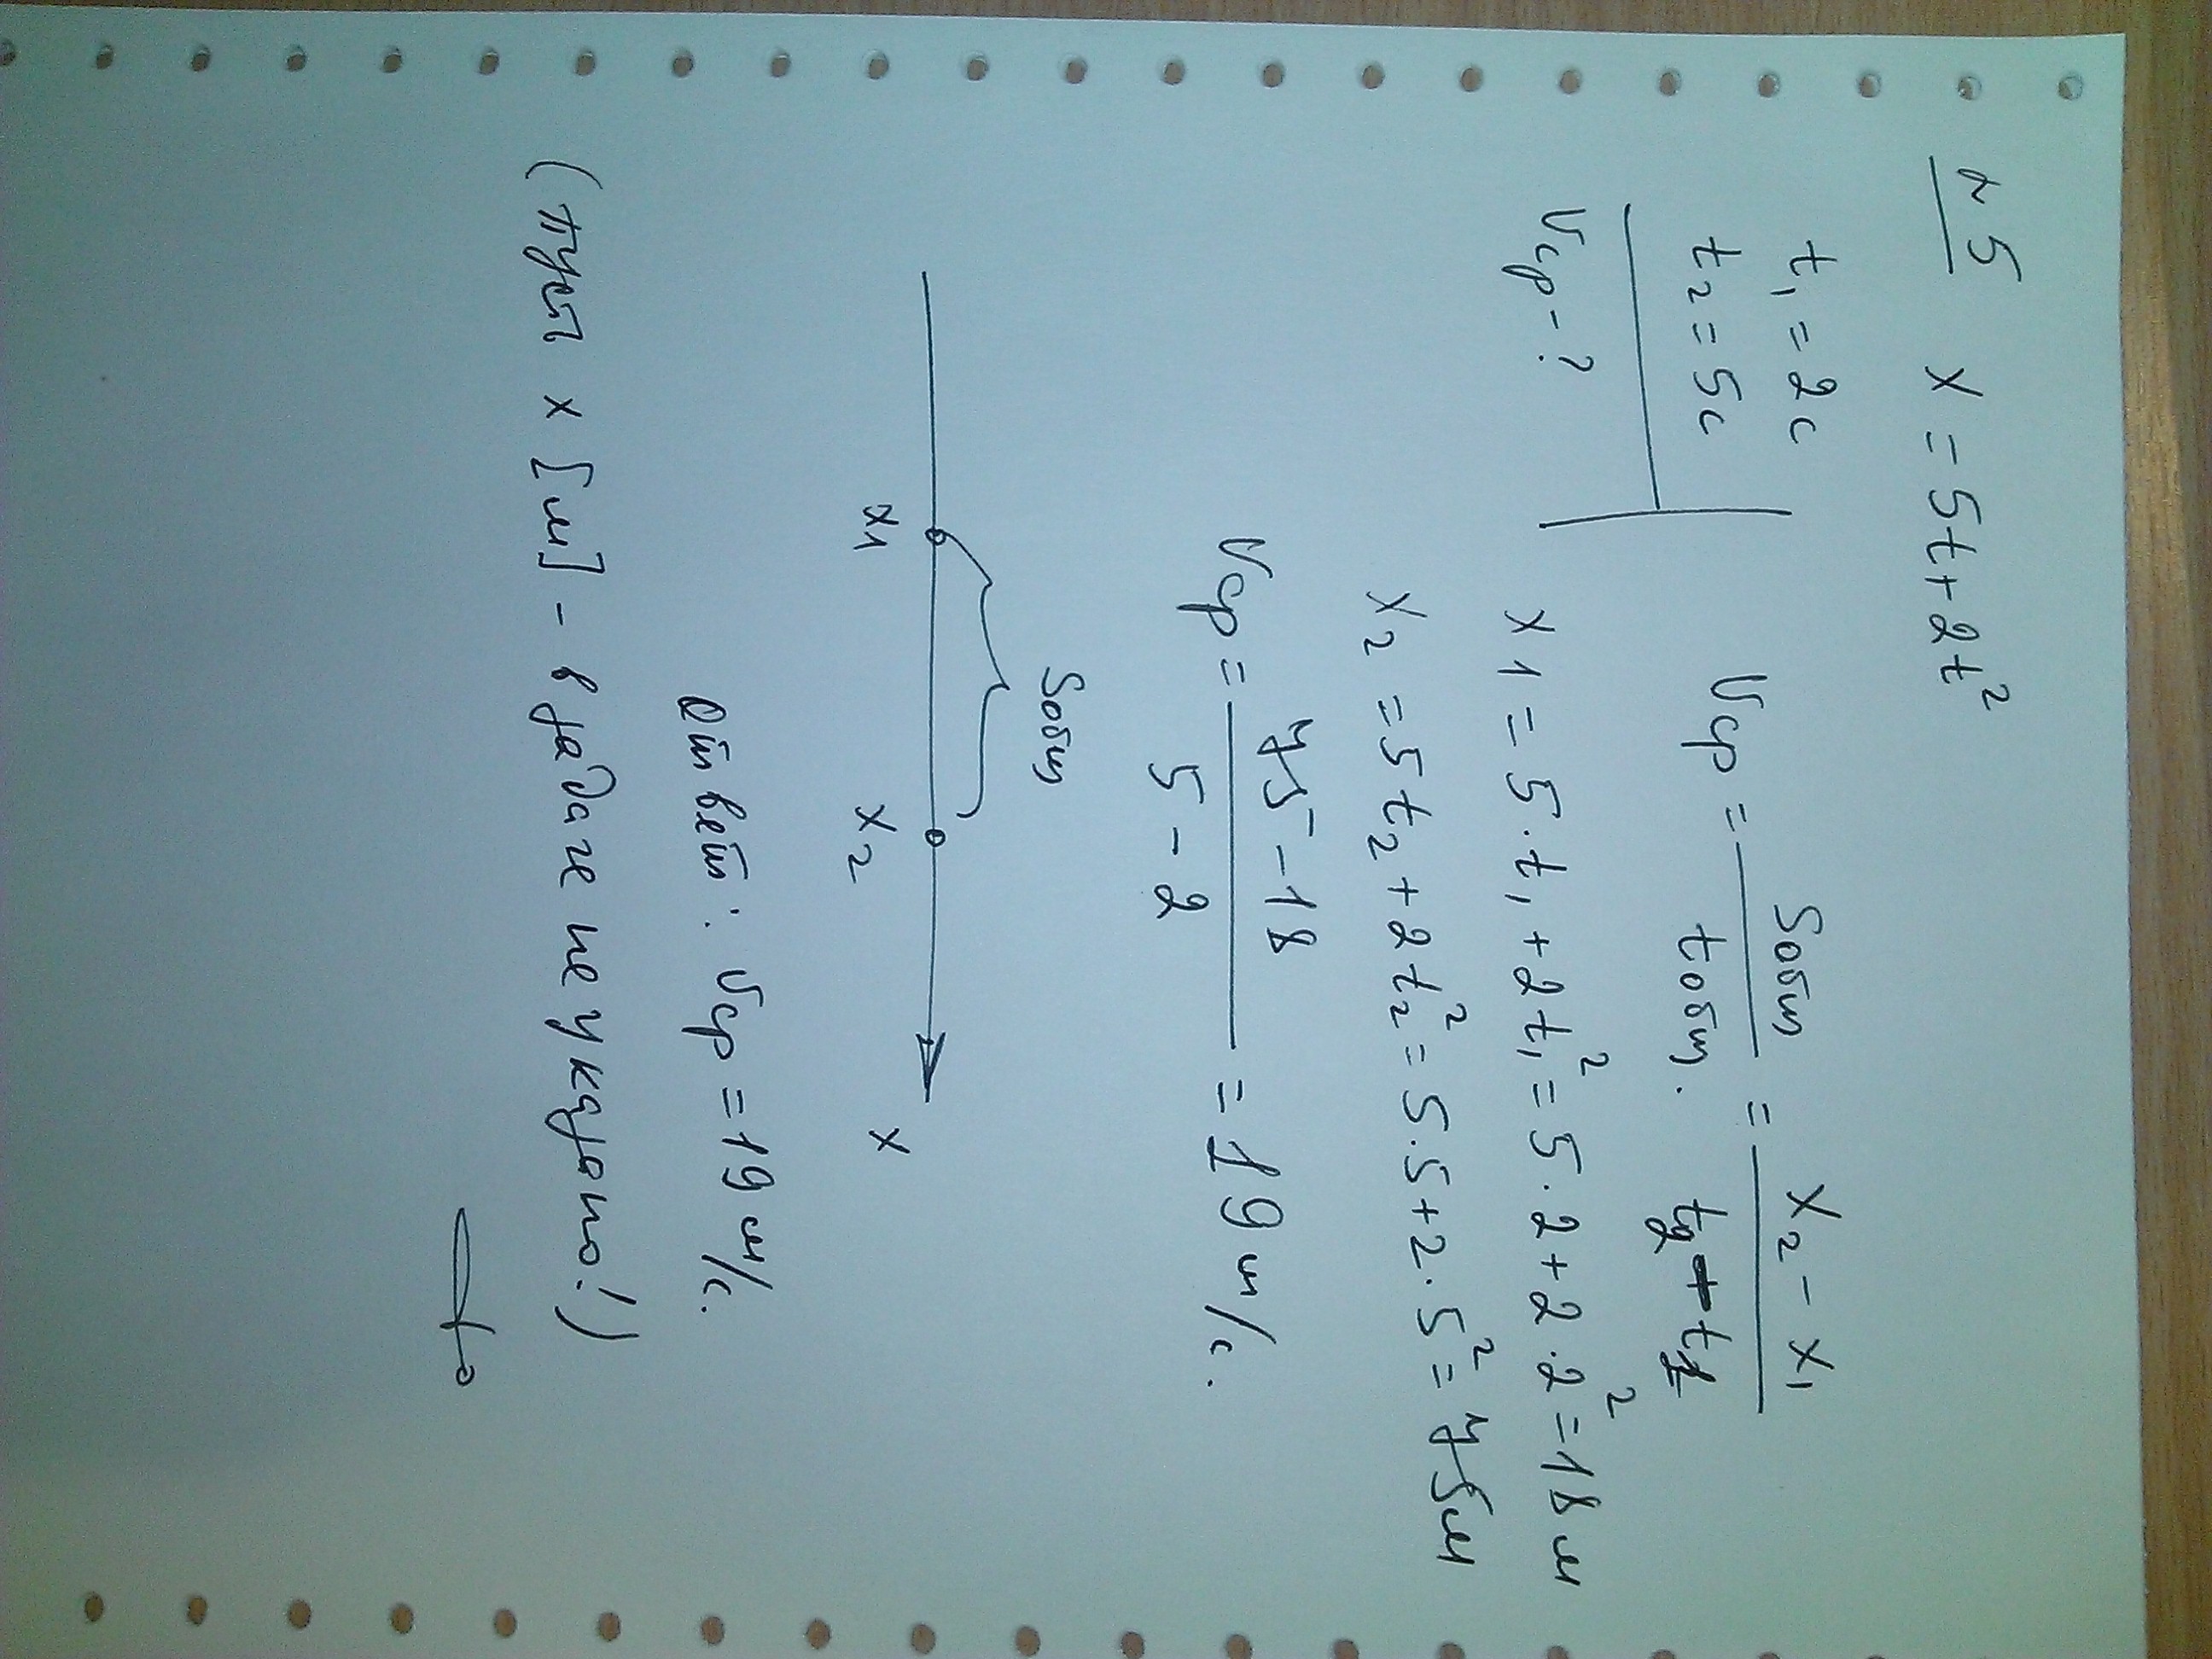 №5 x = 5t + 2t²
t₁ = 2с
t₂ = 5с
Vср - ?
Vср = Sобщ / tобщ. = x₂ - x₁ / t₂ - t₁
x1 = 5·t₁ + 2t₁² = 5·2 + 2·2² = 18 м
x₂ = 5t₂ + 2t₂² = 5·5 + 2·5² = 75м
Vср = 75 - 18 / 5 - 2 = 19 м/с.
Sобщ
x1 x2 x
Ответ: Vср = 19 м/с.
(пусть x [м] - в задаче не указано!)